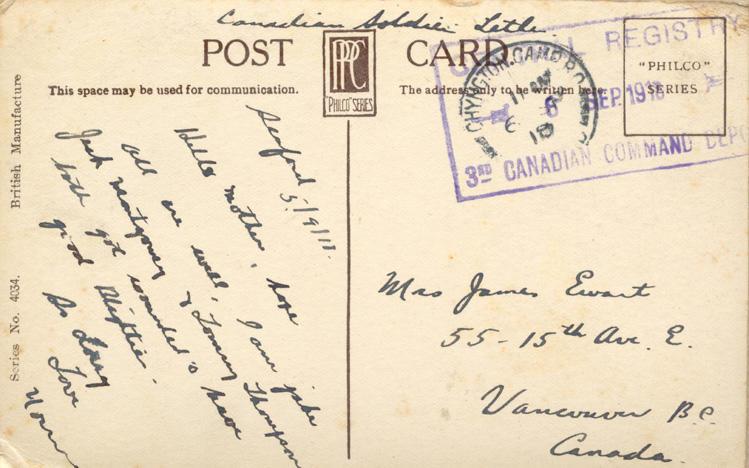 Canadian Soldier Letter
POST CARD.
PPC
"PHILCO" SERIES
This space may be used for communication.
The address only to be written here.
"PHILCO"
SERIES
GENERAL REGISTRY
6 SEP. 1918
3RD CANADIAN COMMAND DEPO
CHYNGTON CAMP B.O.
11 AM
6
18
British Manufacture
Series No. 4034.
Seaford
5/9/18.
Hello mother, hope
all are well, I am jake
Jack Montgomery & Tommy Thompson
both got wounded & have
good Blighties.
So Long
Love
Norm
Mrs James Ewart
55-15th Ave. E.
Vancouver B.C.
Canada.